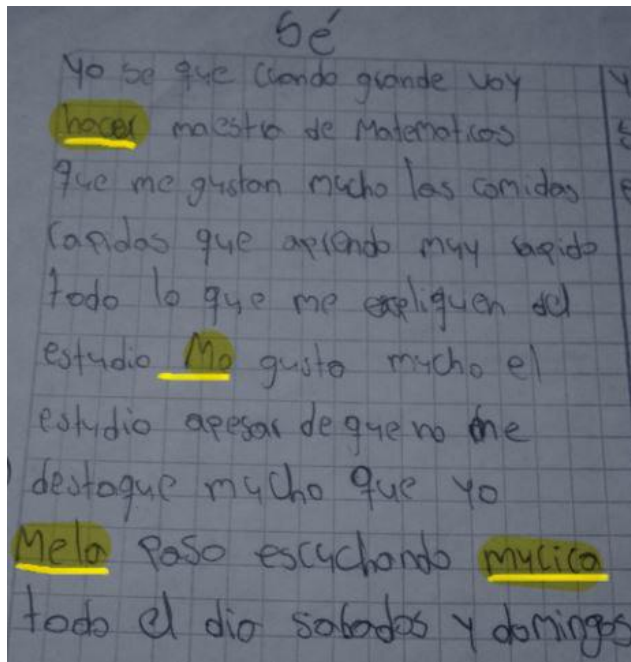 Sé
Yo se que cuando grande voy
hacer maestro de Matematicas
que me gustan mucho las comidas
rapidas que aprendo muy rapido
todo lo que me expliquen del
estudio Mo gusto mucho el
estudio apesar de que no me
destaque mucho que yo
Mela paso escuchando mucica
todo el dia sabados y domingos